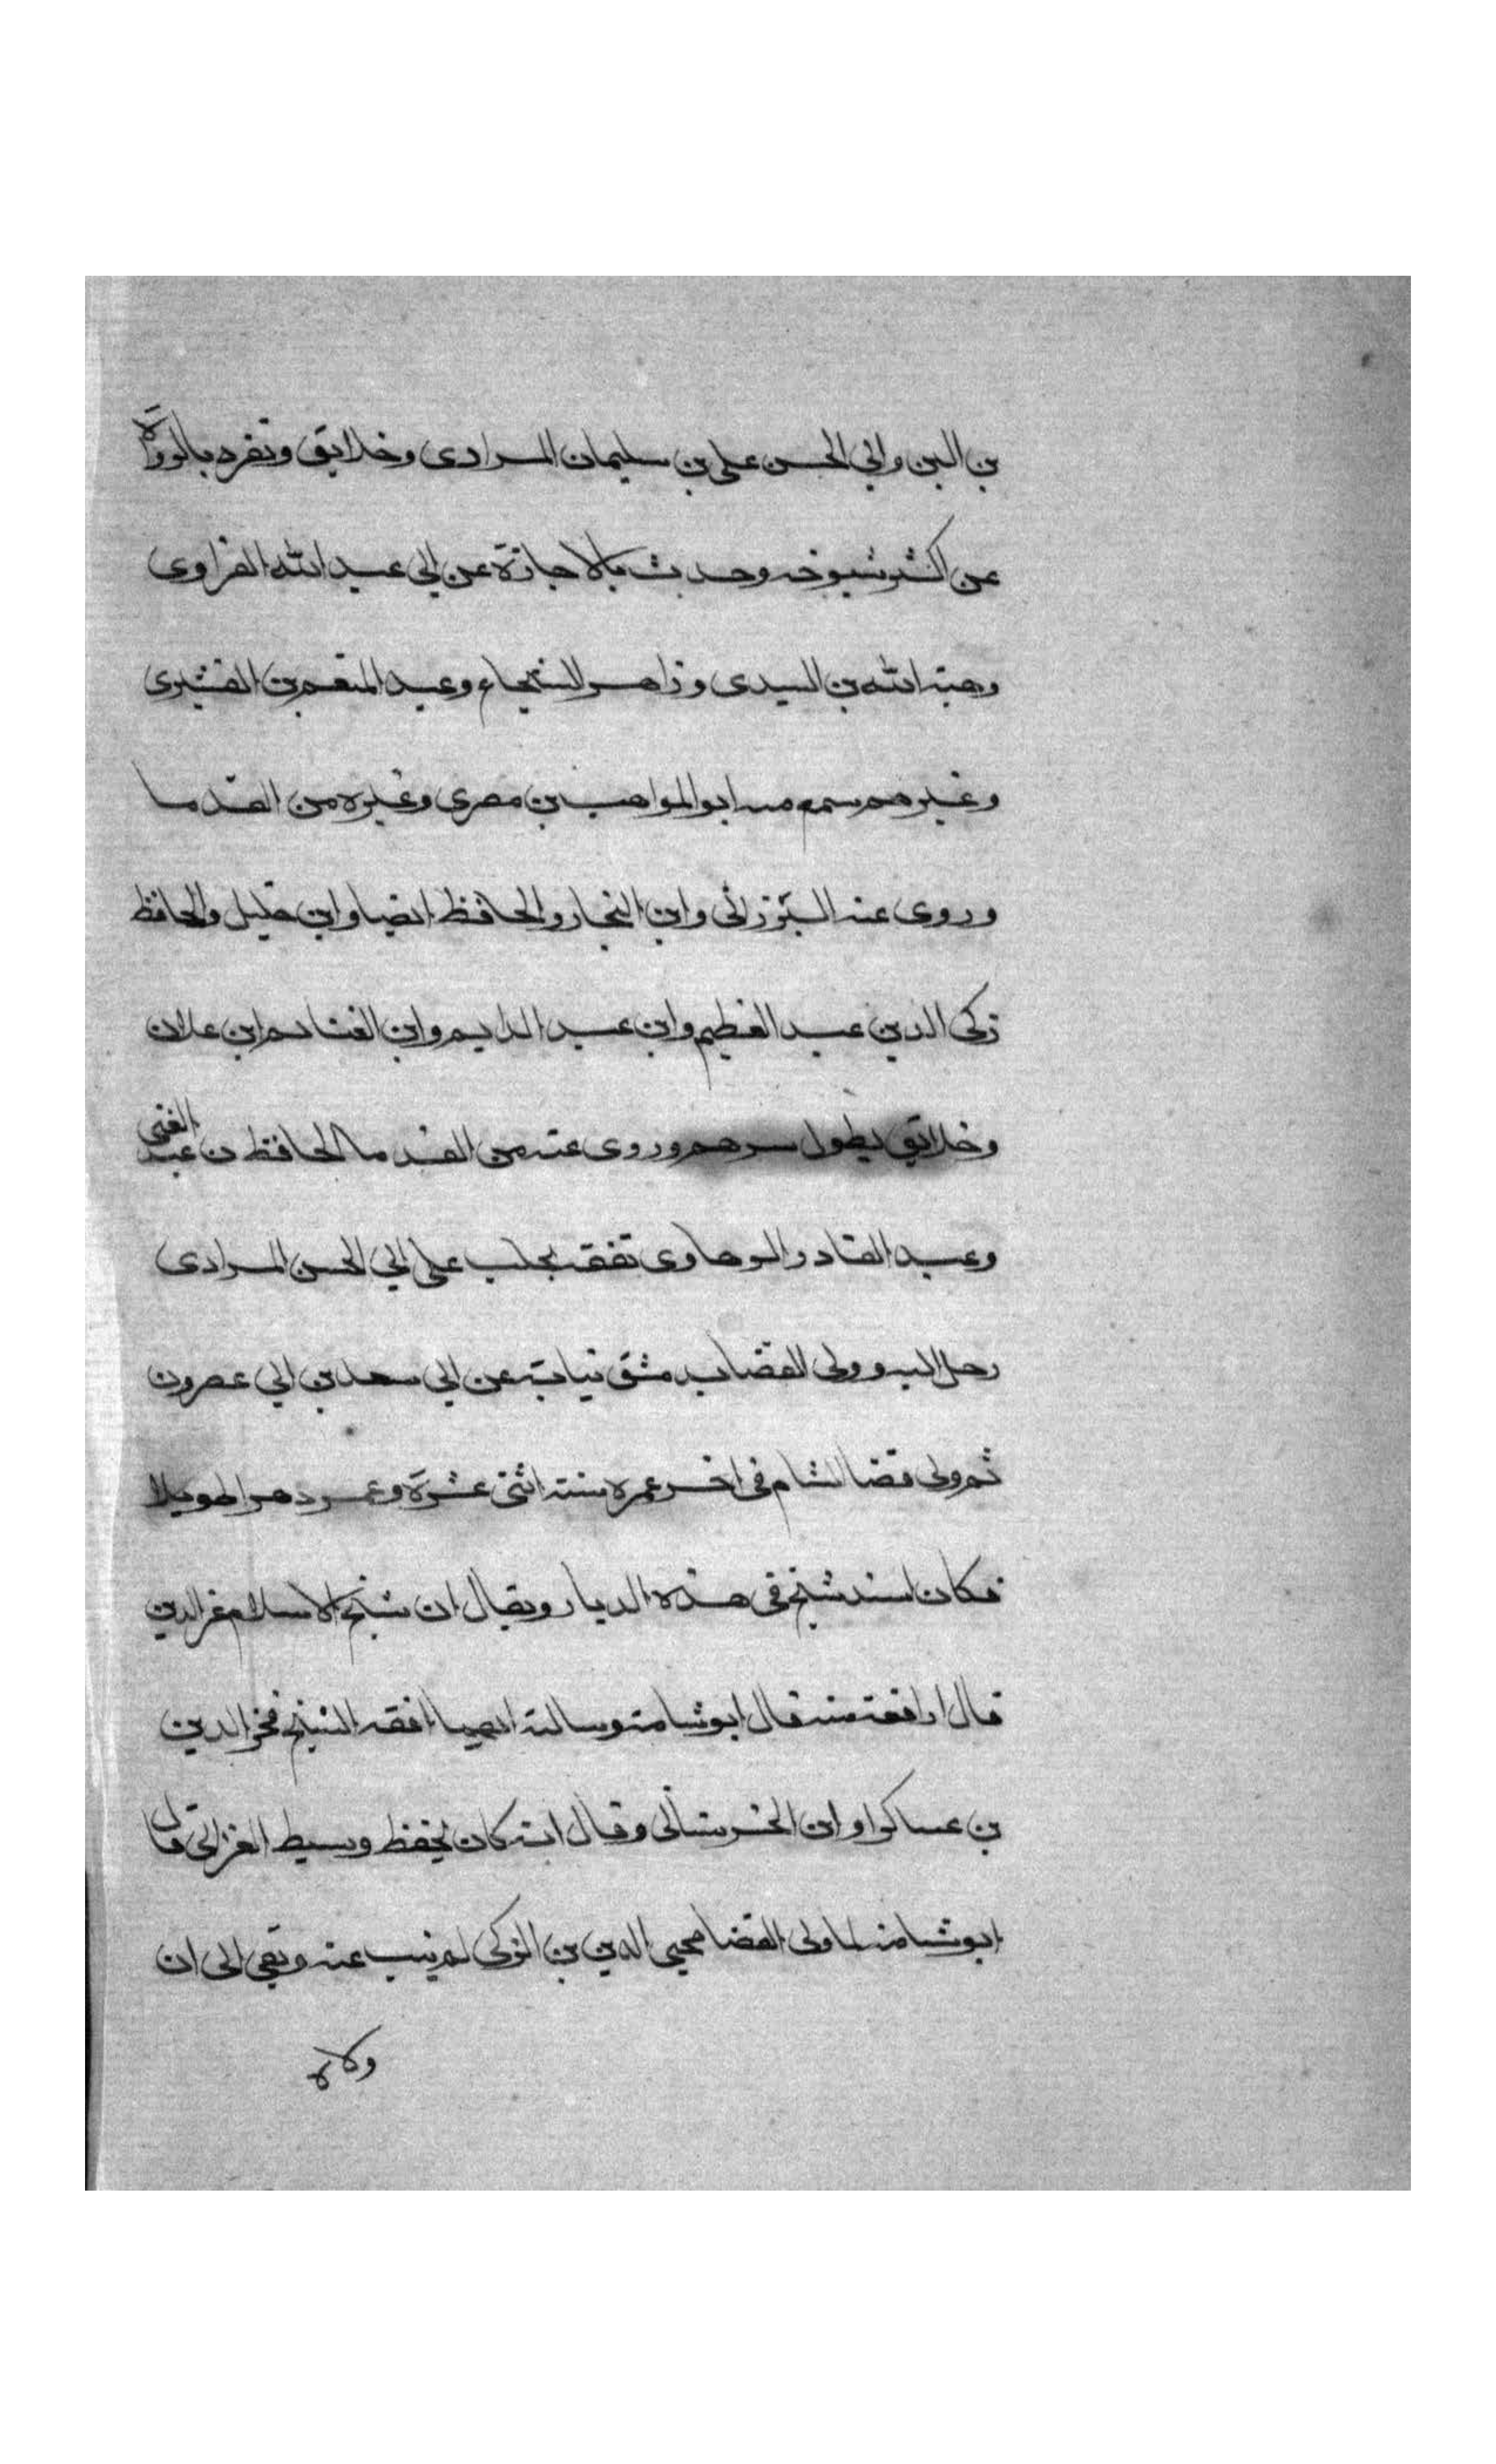 بن البن وابي الحسن علي بن سليمان المرادى وخلايق وتفرد بالرواة
عن اكثر شيوخه وحدث بالاجازة عن ابي عبد الله الفراوى
وهبة الله بن السيدى وزاهر الشحاع وعبد المنعم بن القشيرى
وغيرهم سمع منه ابو المواهب بن مصرى وغيره من القدما
وروى عنه البرزالى وابن النجار والحافظ الضيا وابن خليل والحافظ
زكى الدين عبد العظيم وابن عبد الدايم وابن الغنايم ابن علان
وخلايق يطول سرهم وروى عنه من القدما الحافظ بن عبد الغنى
وعبد القادر الرهاوى تفقه بحلب على ابي الحسن المرادى
رحل اليه وولى القضا بدمشق نيابة عن ابي سعد بن ابي عصرون
ثم ولى قضا الشام فى اخر عمره سنة اثنتى عشرة وعمر دهرا طويلا
فكان اسند شيخ فى هذه الديار ويقال ان شيخ الاسلام عز الدين
قال ارافقه منه قال ابو شامة وسالته ايهما افقه الشيخ فخر الدين
بن عساكر او ابن الحرستانى وقال انه كان يحفظ وسيط الغزالى قال
ابو شامة لما ولى القضا محيى الدين بن الزكى لم ينب عنه وبقى الى ان
ولاه